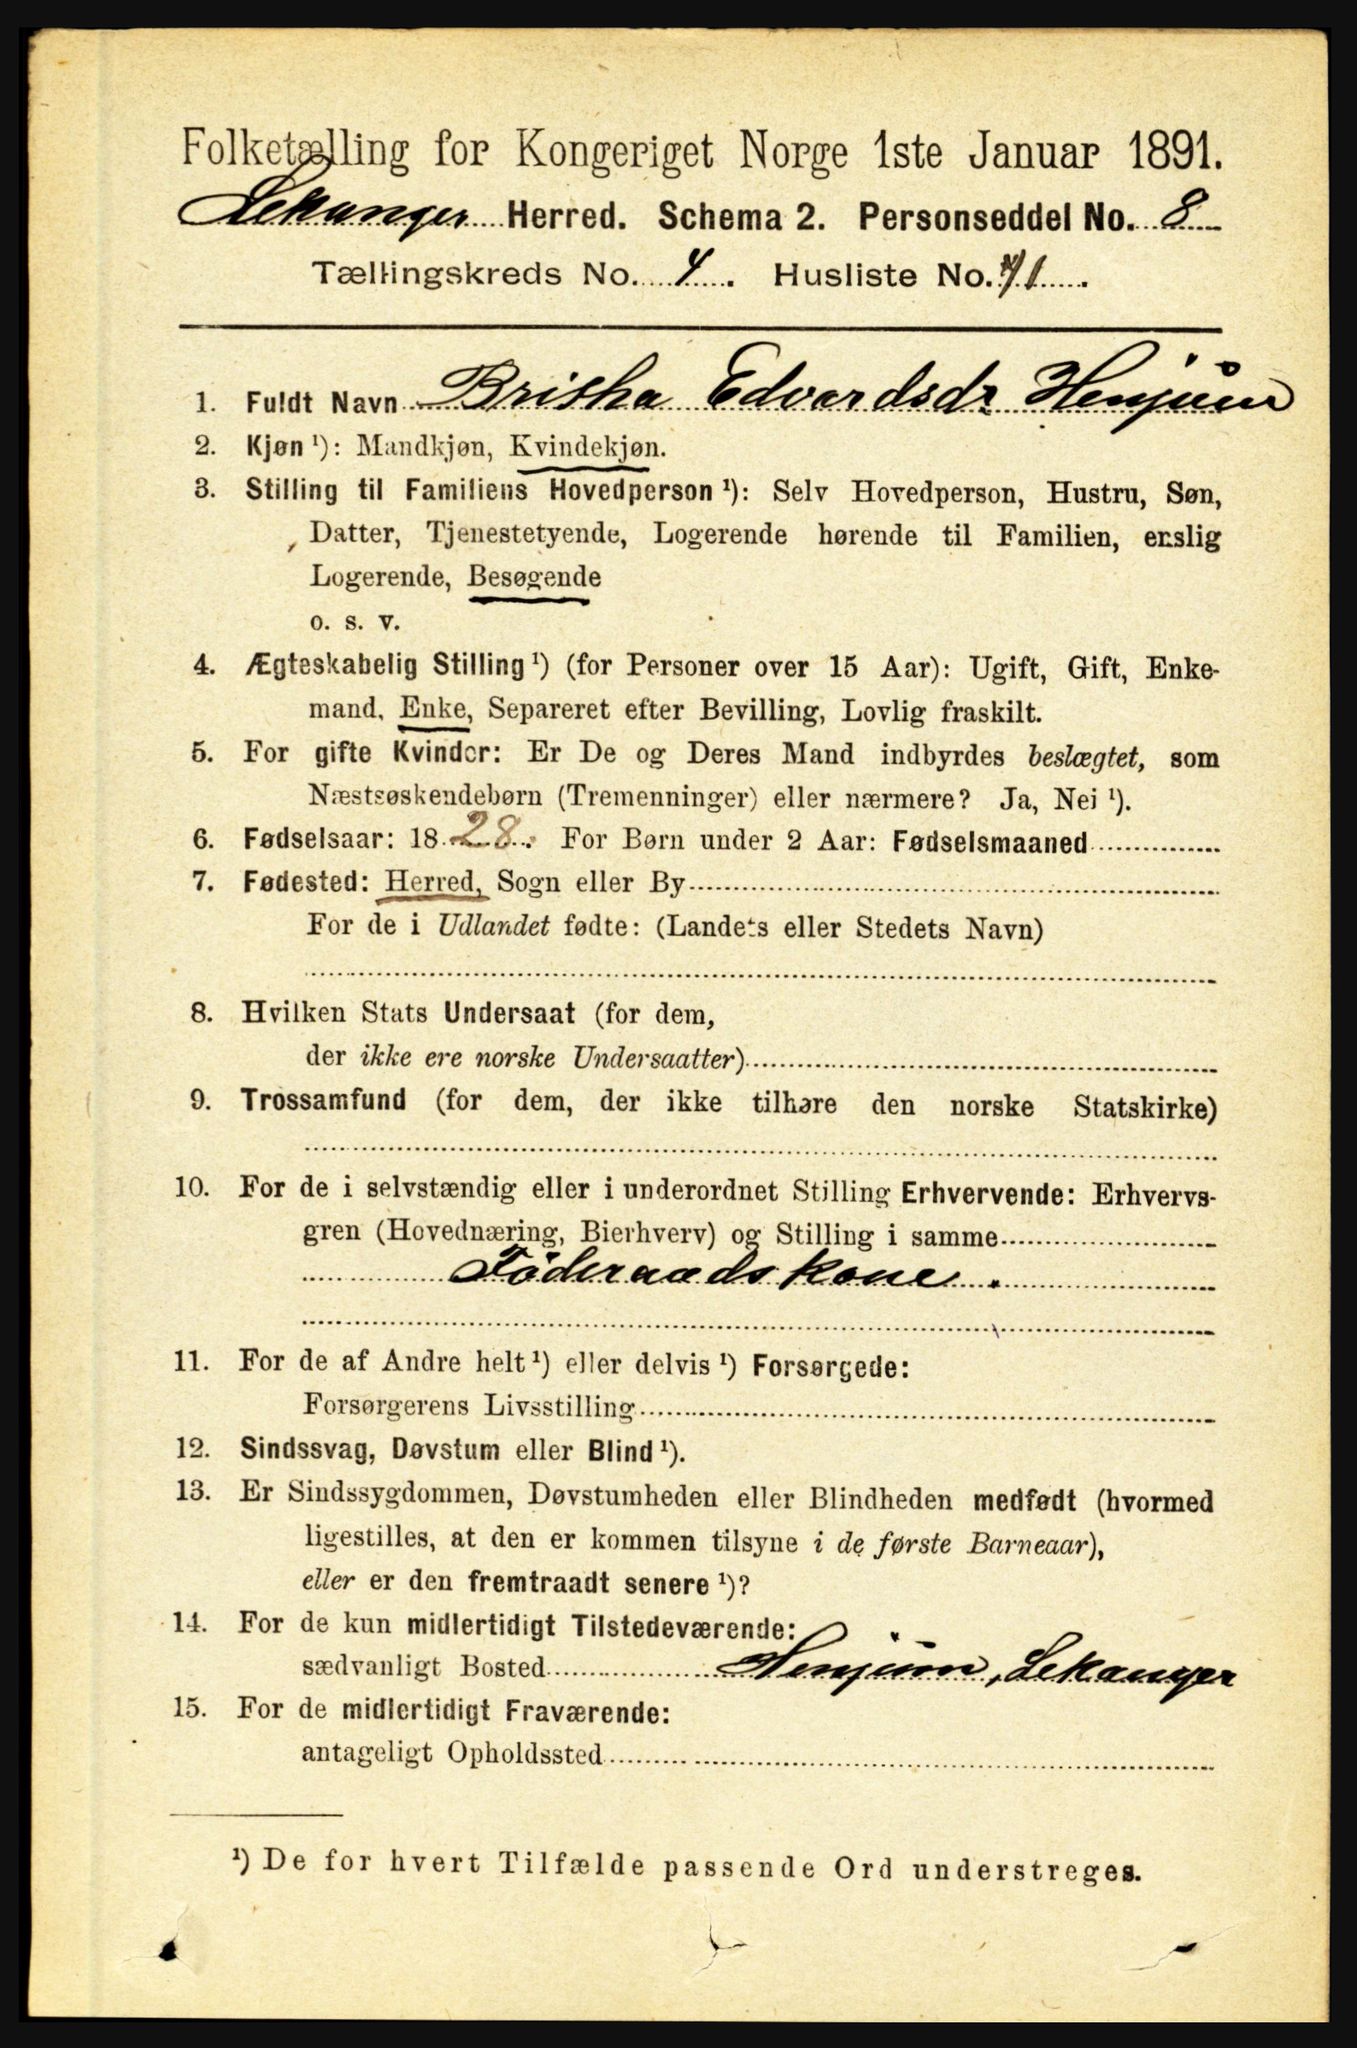 Folketælling for Kongeriget Norge 1ste Januar 1891.
Lekanger Herred. Schema 2. Personseddel No. 8
Tællingskreds No. 4. Husliste No. 71.
1. Fuldt Navn Britha Edvardsdr Henjum
2. Kjøn ¹): Mandkjøn, Kvindekjøn.
3. Stilling til Familiens Hovedperson ¹): Selv Hovedperson, Hustru, Søn,
Datter, Tjenestetyende, Logerende hørende til Familien, enslig
Logerende, Besøgende
o. s. v.
4. Ægteskabelig Stilling ¹) (for Personer over 15 Aar): Ugift, Gift, Enke-
mand, Enke, Separeret efter Bevilling, Lovlig fraskilt.
5. For gifte Kvinder: Er De og Deres Mand indbyrdes beslægtet, som
Næstsøskendebørn (Tremenninger) eller nærmere? Ja, Nei ¹).
6. Fødselsaar: 1828. For Børn under 2 Aar: Fødselsmaaned
7. Fødested: Herred, Sogn eller By
For de i Udlandet fødte: (Landets eller Stedets Navn)
8. Hvilken Stats Undersaat (for dem,
der ikke ere norske Undersaatter)
9. Trossamfund (for dem, der ikke tilhøre den norske Statskirke)
10. For de i selvstændig eller i underordnet Stilling Erhvervende: Erhvervs-
gren (Hovednæring, Bierhverv) og Stilling i samme
Föderaadskone.
11. For de af Andre helt ¹) eller delvis ¹) Forsørgede:
Forsørgerens Livsstilling
12. Sindssvag, Døvstum eller Blind ¹).
13. Er Sindssygdommen, Døvstumheden eller Blindheden medfødt (hvormed
ligestilles, at den er kommen tilsyne i de første Barneaar),
eller er den fremtraadt senere ¹)?
14. For de kun midlertidigt Tilstedeværende:
sædvanligt Bosted Henjum, Lekanger
15. For de midlertidigt Fraværende:
antageligt Opholdssted
¹) De for hvert Tilfælde passende Ord understreges.